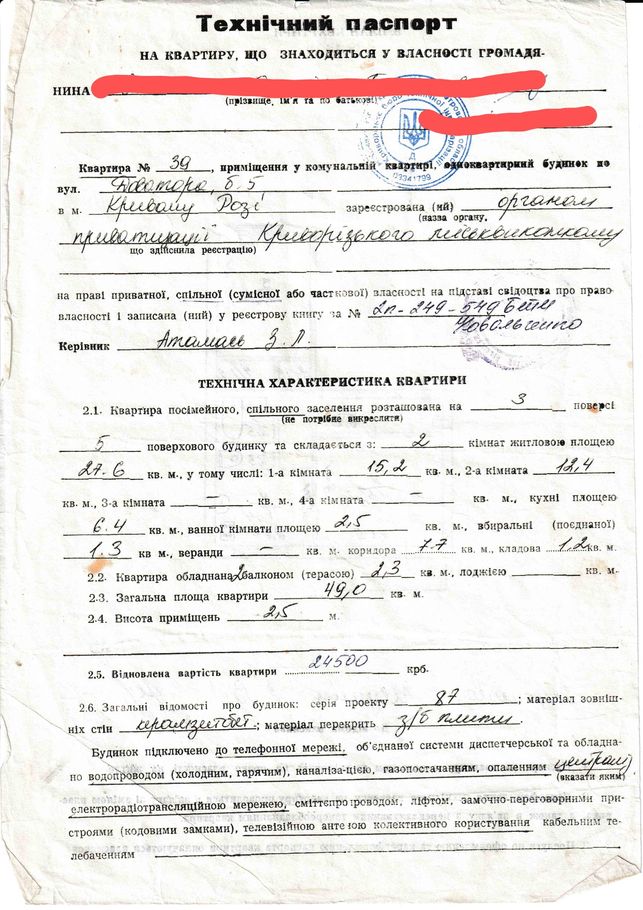 Технічний паспорт
НА КВАРТИРУ, ЩО ЗНАХОДИТЬСЯ У ВЛАСНОСТІ ГРОМАДЯ-
НИНА
(прізвище, ім'я та по батькові)
Квартира № 39, приміщення у комунальній квартирі, одноквартирний будинок по
вул. Доватора, б. 5
в м. Кривому Розі зареєстрована (ний) органом
(назва органу,
приватизації Криворізького міськвиконкому
що здійснила реєстрацію)
на праві приватної, спільної (сумісної або часткової) власності на підставі свідоцтва про право
власності і записана (ний) у реєстрову книгу за № 2п-249-549 БТИ
Керівник Атамась З. Л.
ТЕХНІЧНА ХАРАКТЕРИСТИКА КВАРТИРИ
2.1. Квартира посімейного, спільного заселення розташована на 3 поверсі
(не потрібне викреслити)
5 поверхового будинку та складається з: 2 кімнат житловою площею
27.6 кв. м., у тому числі: 1-а кімната 15,2 кв. м., 2-а кімната 12,4
кв. м., 3-а кімната — кв. м., 4-а кімната — кв. м., кухні площею
6.4 кв. м., ванної кімнати площею 2,5 кв. м., вбиральні (поєднаної)
1.3 кв м., веранди — кв. м. коридора 7.7 кв. м., кладова 1.2 кв. м.
2.2. Квартира обладнана 2 балконом (терасою) 2,3 кв. м., лоджією кв. м.
2.3. Загальна площа квартири 49,0 кв. м.
2.4. Висота приміщень 2,5 м.
2.5. Відновлена вартість квартири 24500 крб.
2.6. Загальні відомості про будинок: серія проекту 87; матеріал зовніш-
ніх стін керамзитбет.; матеріал перекрить з/б плити.
Будинок підключено до телефонної мережі, об'єднаної системи диспетчерської та обладна-
но водопроводом (холодним, гарячим), каналіза-цією, газопостачанням, опаленням централ
(вказати яким)
електрорадіотрансляційною мережею, сміттєпроводом, ліфтом, замочно-переговорними при-
строями (кодовими замками), телевізійною антеною колективного користування кабельним те-
лебаченням